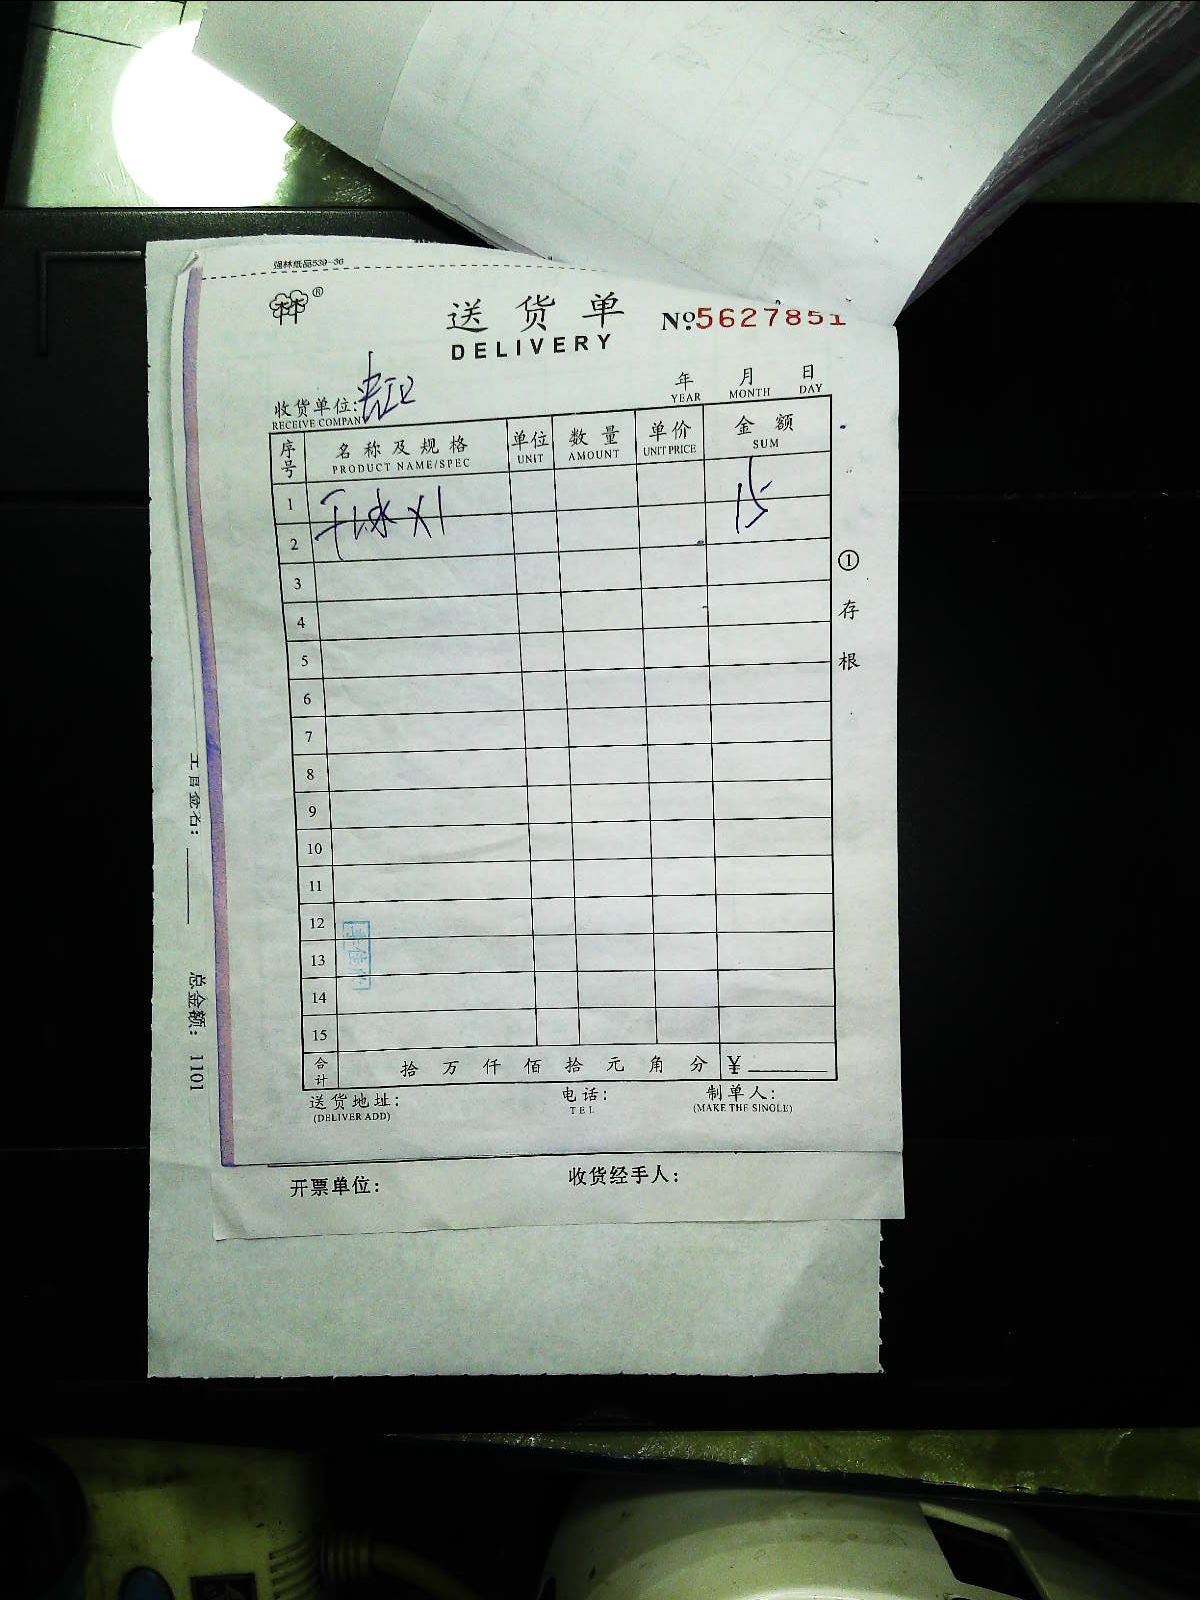 强林纸品539-36
®
送货单
№5627851
DELIVERY
年 月 日
YEAR MONTH DAY
收货单位:
RECEIVE COMPAN
序号 名称及规格 单位 数量 单价 金额
PRODUCT NAME/SPEC UNIT AMOUNT UNIT PRICE SUM
1
水 X1 15
2
3
4
5
6
7
8
9
10
11
12
13
14
15
合计 拾 万 仟 佰 拾 元 角 分 ¥
送货地址: 电话: 制单人:
(DELIVER ADD) TEL (MAKE THE SINGLE)
① 存根
开票单位: 收货经手人:
总金额: 1101